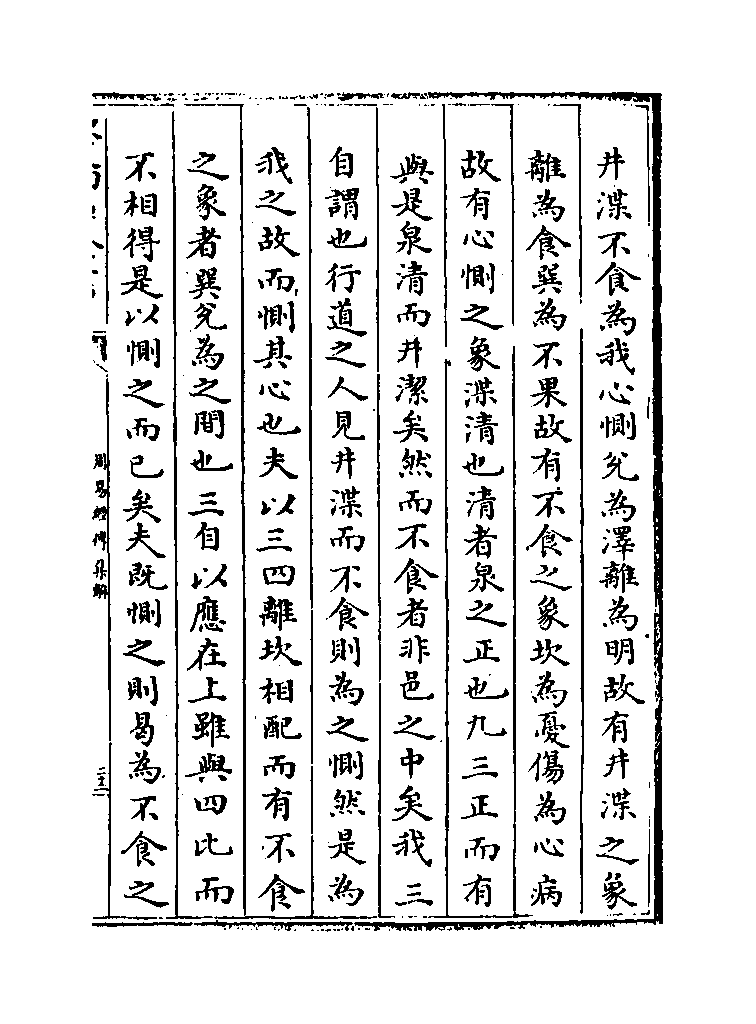 井渫不食為我心惻兊為澤離為明故有井渫之象
離為食巽為不果故有不食之象坎為憂傷為心病
故有心惻之象渫清也清者泉之正也九三正而有
與是泉清而井潔矣然而不食者非邑之中矣我三
自謂也行道之人見井渫而不食則為之惻然是為
我之故而惻其心也夫以三四離坎相配而有不食
之象者巽兊為之間也三自以應在上雖與四比而
不相得是以惻之而已矣夫既惻之則曷為不食之
周易經傳集解
二十三